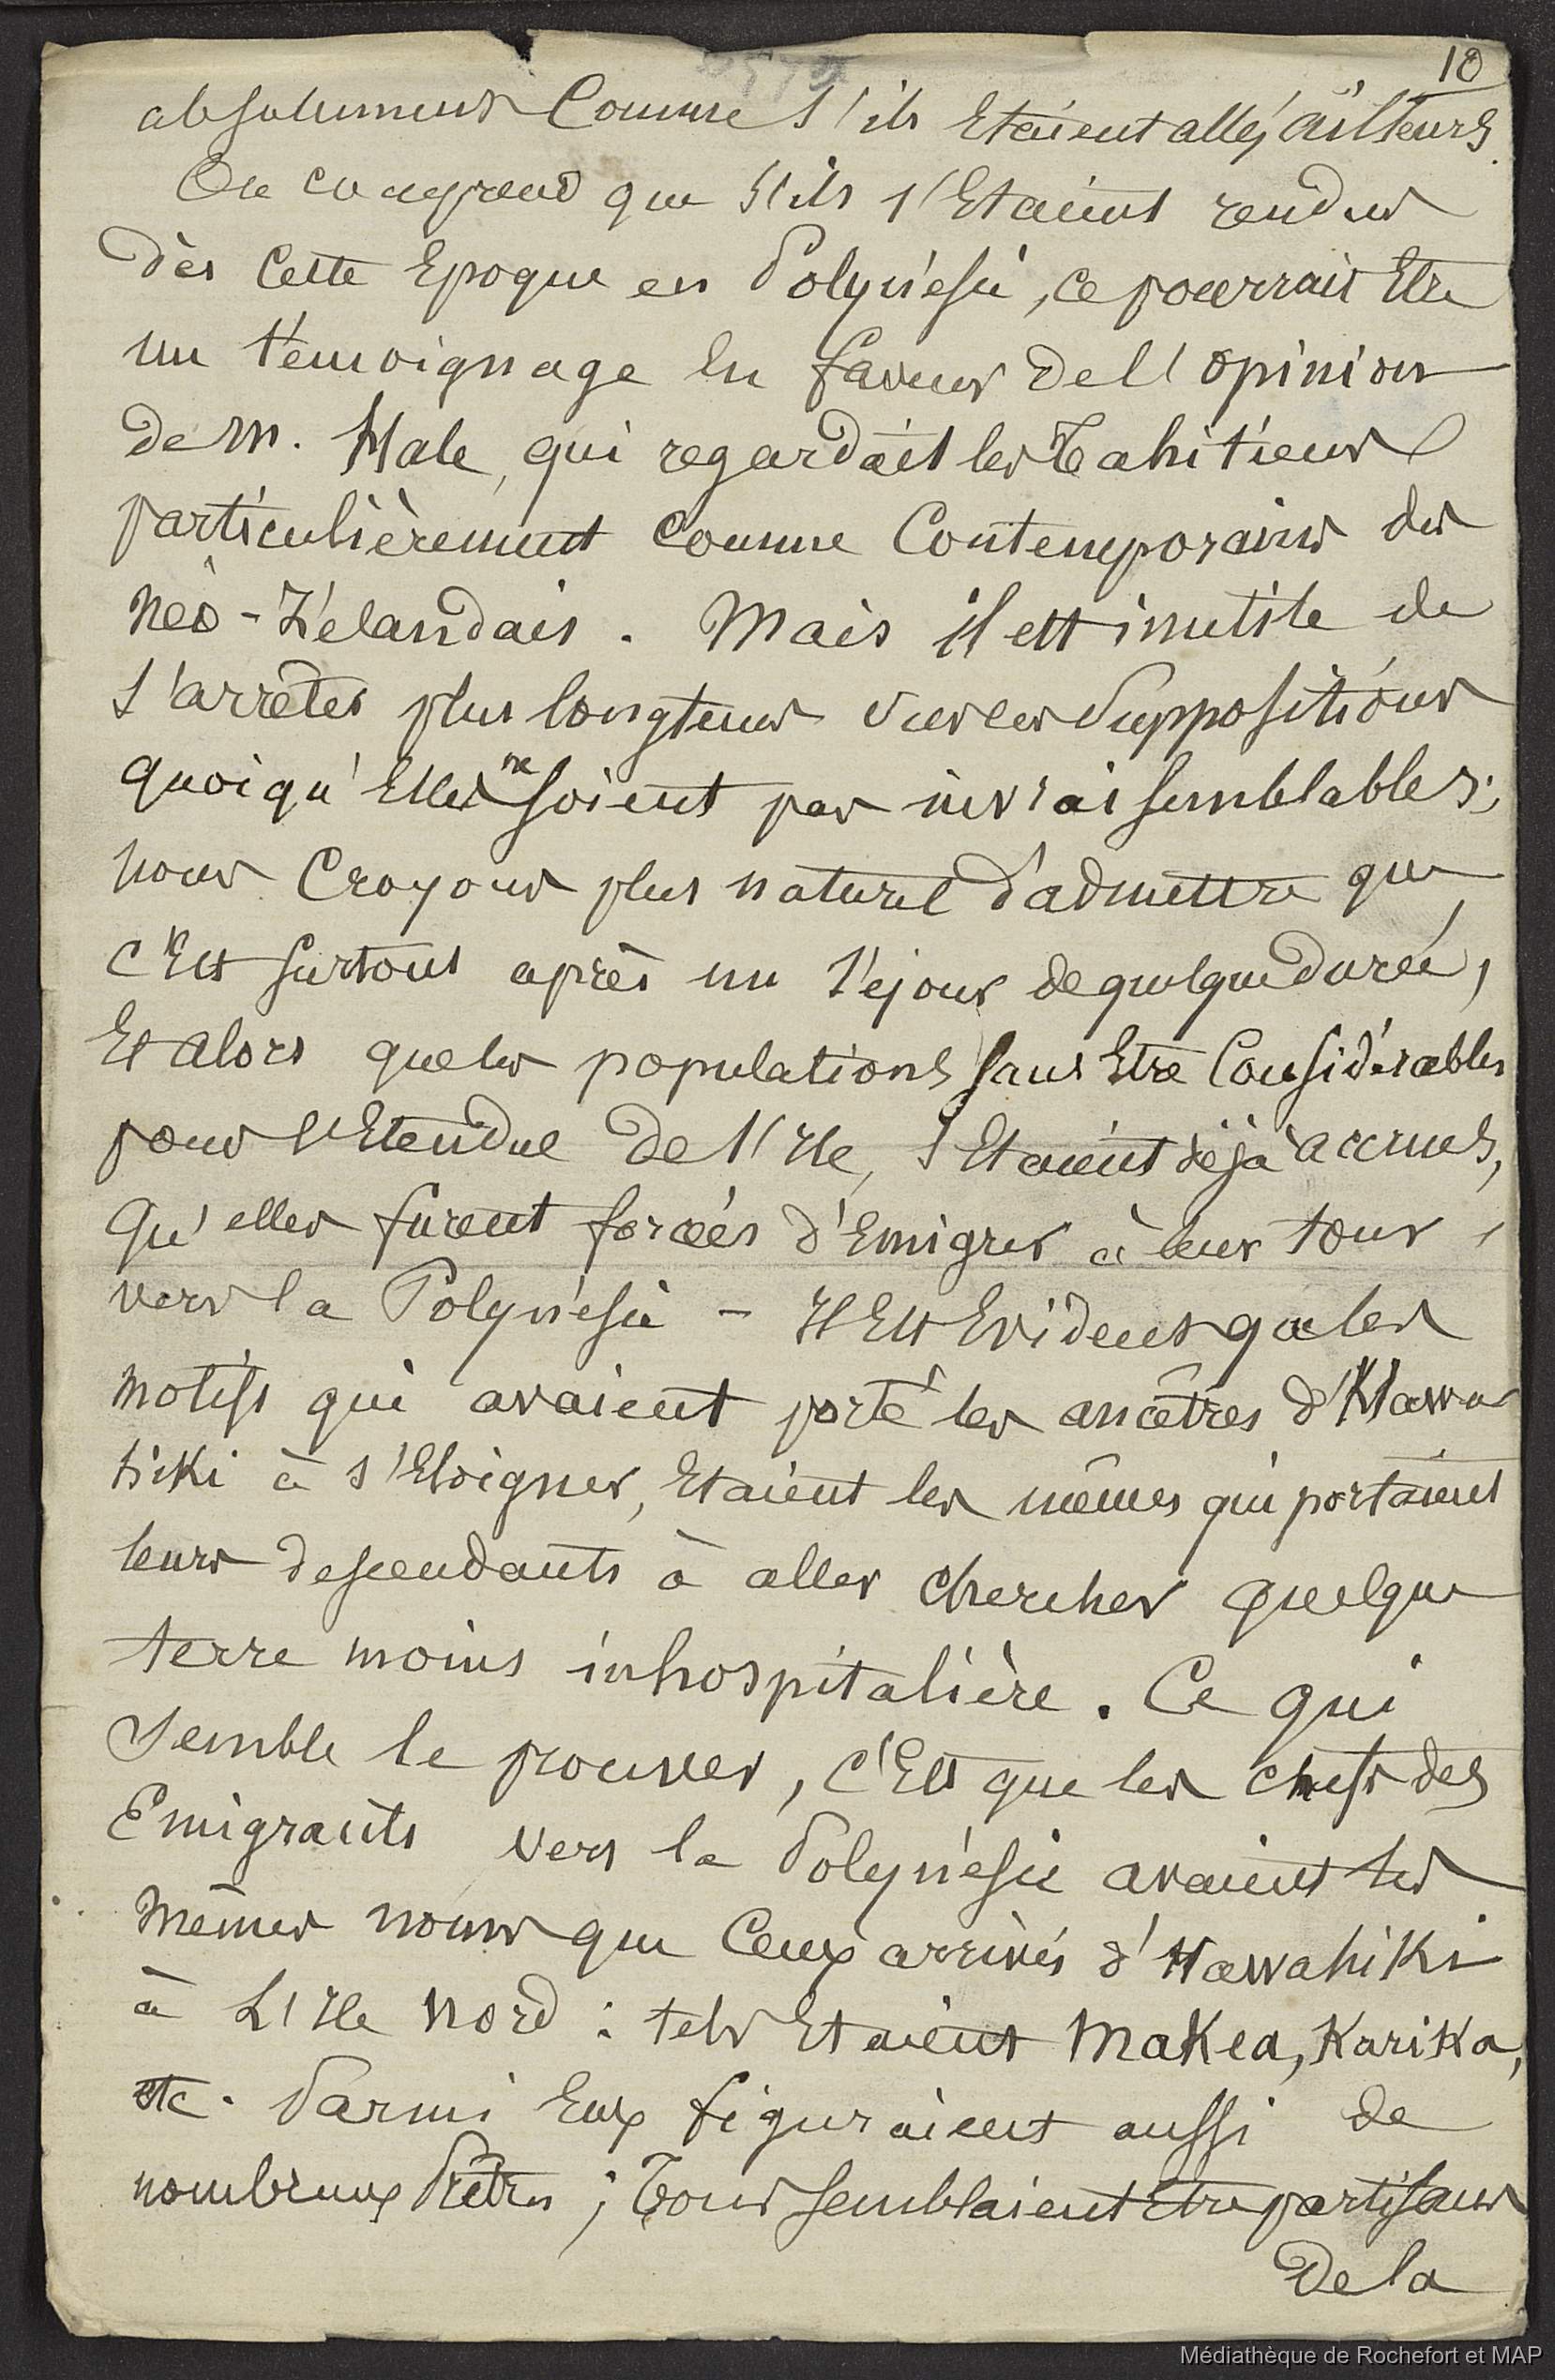 10
absolument comme s'ils Etaient allés ailleurs.
On comprend que s'ils s'Etaient rendus
dès cette Epoque en Polynésie, ce pourrait Etre
un témoignage En faveur de l'opinion
de M. Hale, qui regardait les Tahitiens
particulièrement comme Contemporains des
Néo-Zélandais. Mais il est inutile de
s'arrêter plus longtems sur ces suppositions
quoiqu'Elles ne soient pas invraisemblables;
nous Croyons plus naturel d'admettre que,
c'Est surtout après un séjour de quelque durée,
Et alors que les populations sans Etre Considérables
pour l'Etendue de l'Ile, s'Etaient déjà accrues,
qu'elles furent forcées d'Emigrer à leur tour,
vers la Polynésie - Il Est Evident que les
motifs qui avaient porté les ancêtres d'Hawa
hiki à s'Eloigner, Etaient les mêmes qui portaient
leurs descendants à aller chercher quelque
terre moins inhospitalière. Ce qui
semble le prouver, c'Est que les chefs des
Emigrants vers la Polynésie avaient les
mêmes noms que Ceux arrivés d'Hawahiki
à L'Ile Nord : tels Etaient Makea, Karika,
etc. Parmi Eux figuraient aussi de
nombreux Prêtres ; Tous semblaient Etre partisans
De la
Médiathèque de Rochefort et MAP